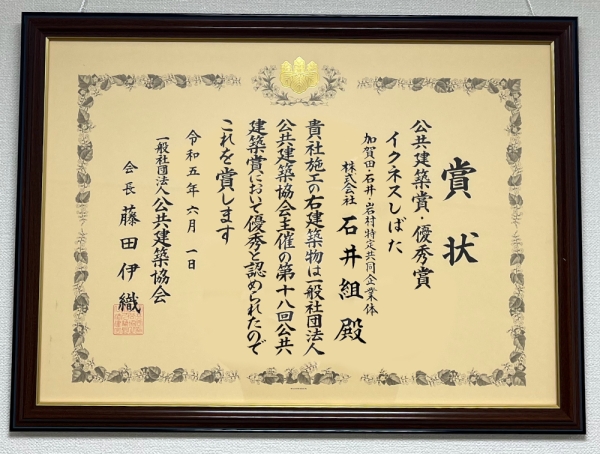 賞状
公共建築賞・優秀賞
イクネスしばた
加賀田・石井・岩村特定共同企業体
株式会社 石井組 殿
貴社施工の右建築物は一般社団法人
公共建築協会主催の第十八回公共
建築賞において優秀と認められたので
これを賞します
令和五年六月一日
一般社団法人公共建築協会
会長 藤田伊織